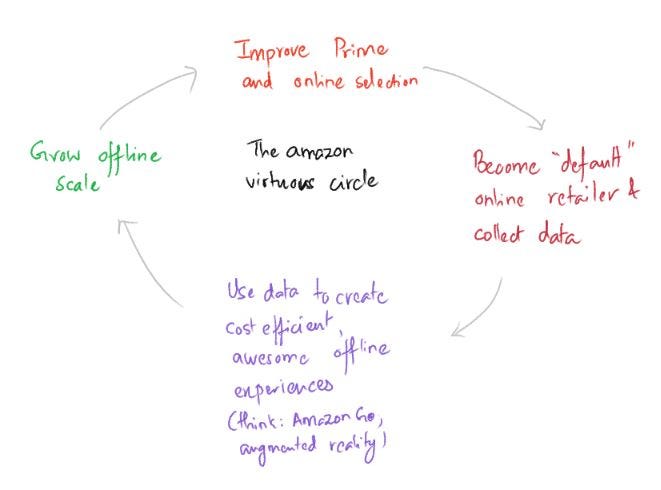 Improve Prime
and online selection
Become "default"
online retailer &
collect data
Use data to create
cost efficient,
awesome offline
experiences
(think: Amazon Go,
augmented reality)
Grow offline
scale
The amazon
virtuous circle